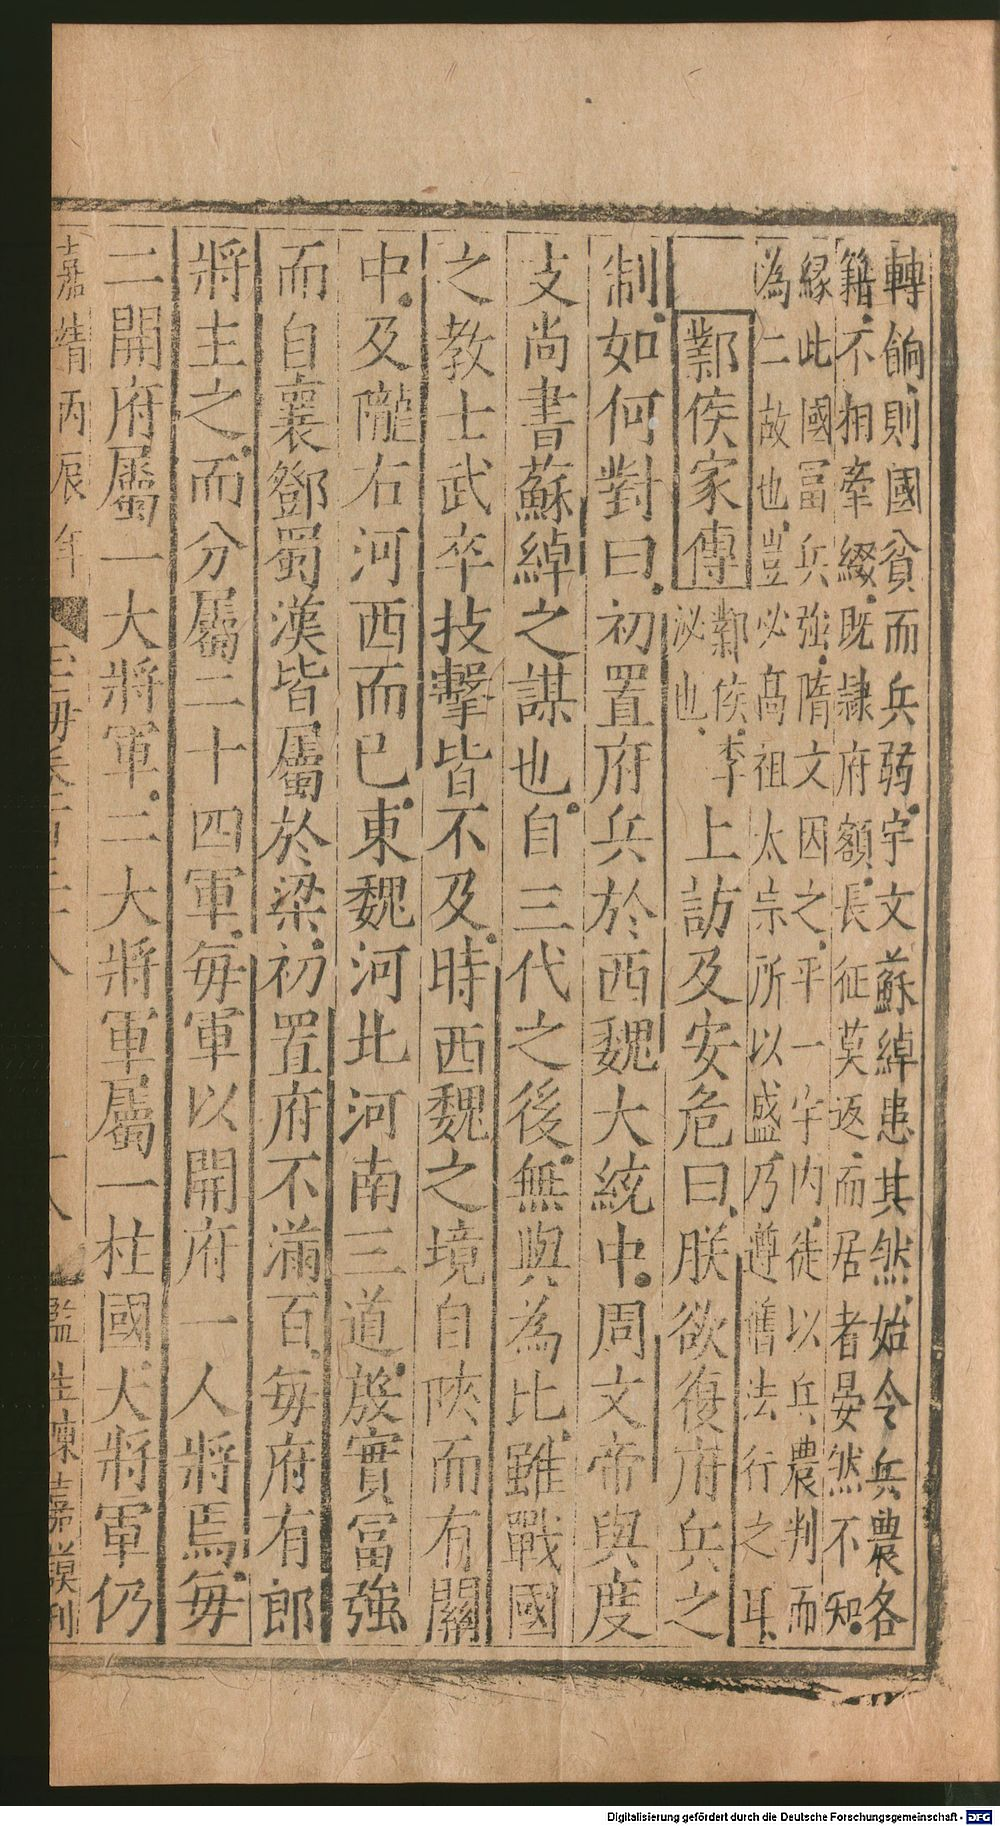 轉餉則國貧而兵弱宇文蘇綽患其然始令兵農各
籍不相牽綴既隷府額長征莫返而居者晏然不知
縁此國冨兵強隋文因之平一宇内徒以兵農判而
為二故也豈必高祖太宗所以盛乃遵舊法行之耳
鄴侯家傳
鄴侯李
泌也
上訪及安危曰朕欲復府兵之
制如何對曰初置府兵於西魏大統中周文帝與度
支尚書蘇綽之謀也自三代之後無與為比雖戰國
之教士武卒技擊皆不及時西魏之境自陜而有關
中及隴右河西而已東魏河北河南三道放實冨強
而自襄鄧蜀漢皆屬於梁初置府不滿百毎府有郎
將主之而分屬二十四軍毎軍以開府一人將焉毎
二開府屬一大將軍二大將軍屬一柱國大將軍仍
嘉靖丙辰年
玉海卷百三十八
十八
監生陳嘉謨刊
Digitalisierung gefördert durch die Deutsche Forschungsgemeinschaft - DFG